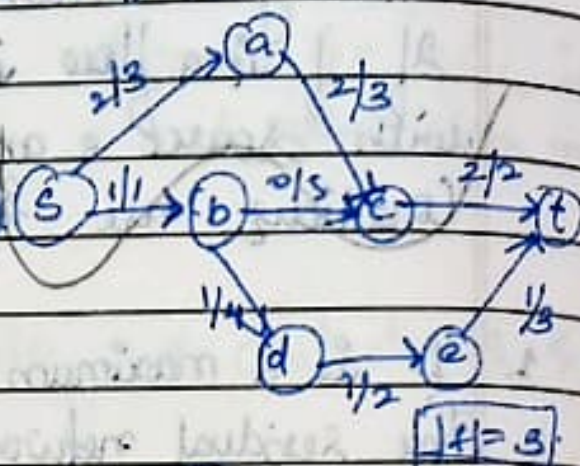 a
2/3
2/3
S
1/1
b
0/5
c
2/2
t
1/4
1/3
d
1/2
e
|f|=3